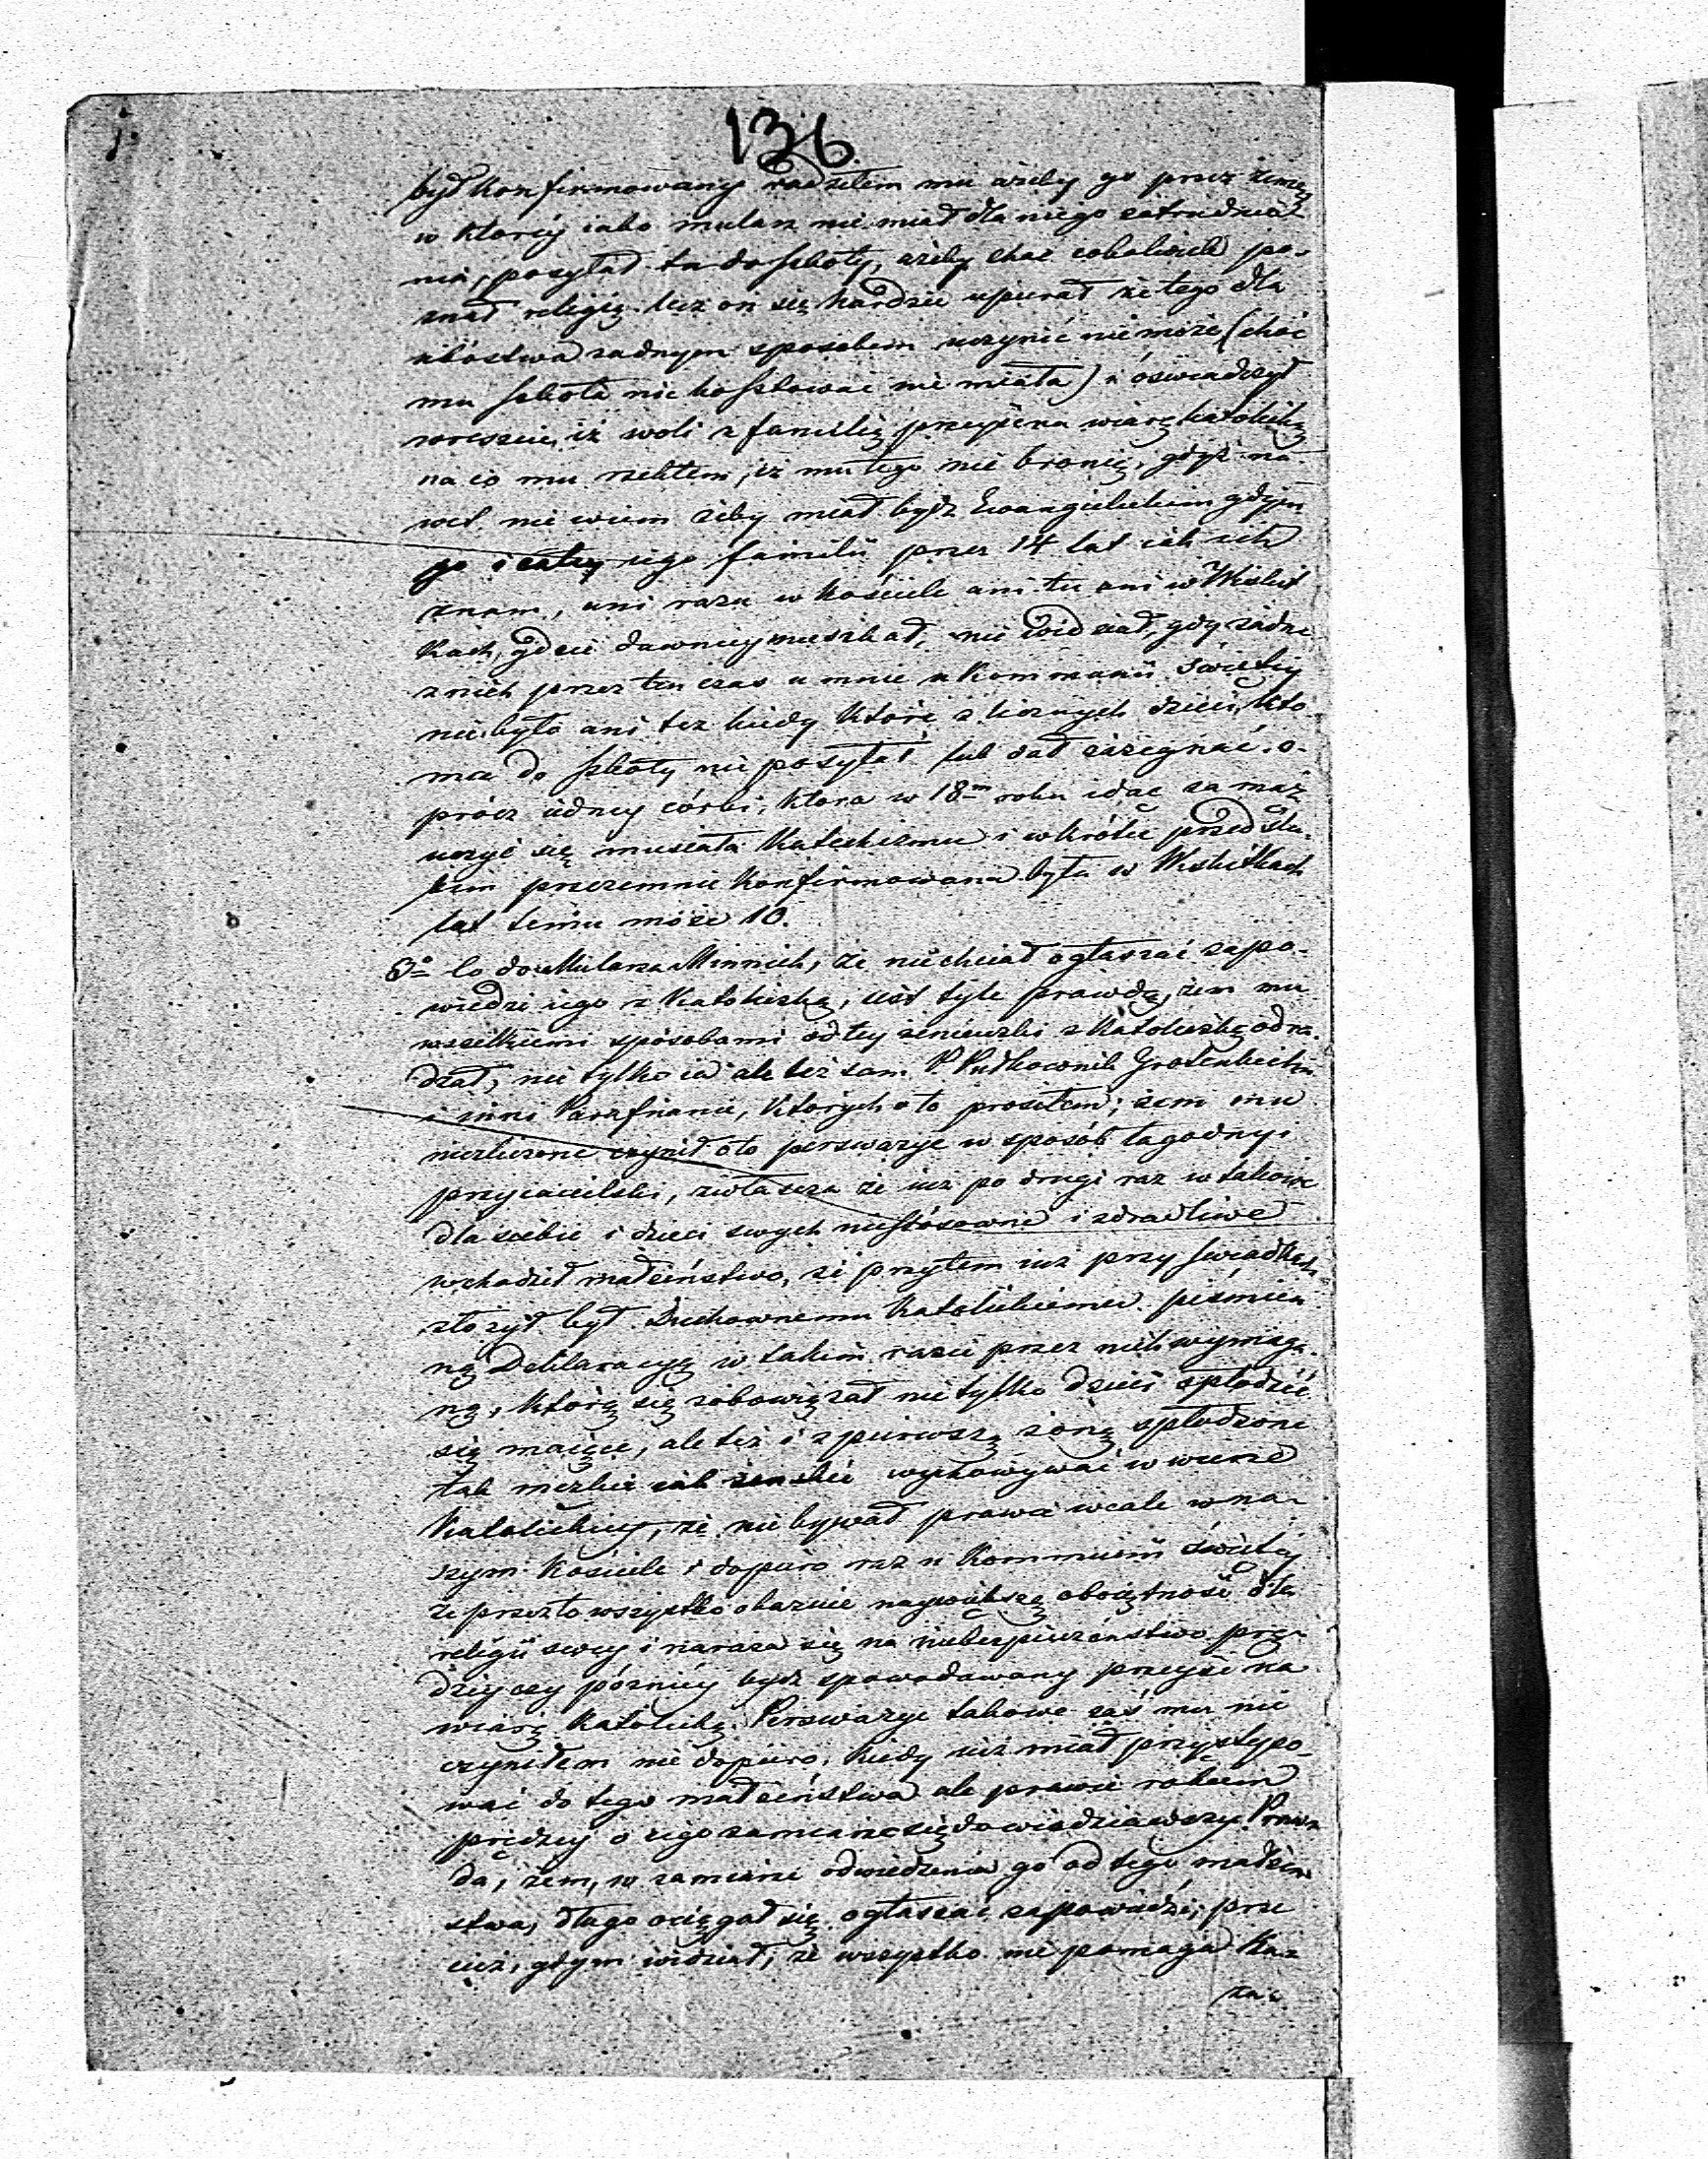 136.
był konfirmowany radziłem mu ażeby go przez zimę,
w ktorey iako mularz nie miał dla niego zatrudnie-
nia, posyłał tu do szkoły, ażeby choć cokolwiek po-
znał religię. lecz on się hardzie upierał że tego dla
ubóstwa żadnym sposobem uczynić nie może (choć
mu szkoła nic kosztować nie miała) i oświadczył
wreszcie, iż woli z familią przeyść na wiarę katolicką
na co mu rzekłem, iż mu tego nie bronię, gdyż na-
wet nie wiem żeby miał bydz Ewangielickim gdym
go i całey iego familii przez 14 lat iak ich
znam, ani razu w kościele ani tu ani w Wiskit
kach, gdzie dawniey mieszkał, nie widział, gdy żadne
z nich przez ten czas u mnie u kommunii świętey
nie było ani też kiedy które z licznych dzieci, kto-
mu do szkoły nie posyłał lub dał żegnać. o-
procz iedney córki, ktora w 18m roku idąc za mąż
uczyć się musiała Katechizmu i wkrótce przed ślu-
bem przezemnie konfirmowana była w Wiskitkach
lat temu może 10.
3o Co do Mularza Minnich, że niechciał ogłaszać zapo-
wiedzi iego z Katoliczką, iest tyle prawdą, żem mu
wszelkiemi sposobami od tey żeniaczki z Katoliczką odra-
dzał, nie tylko ia ale też sam P. Pułkownik
i inni Parafianie, ktorych o to prosiłem; żem mu
niezliczone czynił o to perswazye w sposób łagodny i
przyiacielski, zwłaszcza że iuż po drugi raz w takowe
dla siebie i dzieci swych niestósowne i zdradliwe
wchodził małżeństwo, że przytem iuż przy świadkach
złożył był Duchownemu Katolickiemu piśmien
ną Deklaracyą w takim razie przez nich wymaga-
ną, którą się zobowiązał nie tylko dzieci spłodzić
się maiące, ale też i z pierwszą żoną spłodzone
tak męzkie iak żenskie wychowywać w wierze
Katolickiey, że nie bywał prawie wcale w na-
szym Kościele i dopiero raz u Kommunii świętey
że przez to wszystko okazuie naywiększą oboiętność dla
religii swey i naraża się na niebezpieczeństwo prę-
dzey czy późniey bydz spowodowany przeyść na
wiarę Katolicką. Perswazye takowe zaś mu nie
czyniłem nie dopiero, kiedy iuż miał przystępo-
wać do tego małżeństwa ale prawie rokiem
prędzey o iego zamiarze się dowiedziawszy. Praw-
da, żem, w zamiarze odwiedzenia go od tego małżeń
stwa, długo ociągał się ogłaszać zapowiedzi; prze
cież, gdym widział, że wszystko nie pomaga Ka-
za-